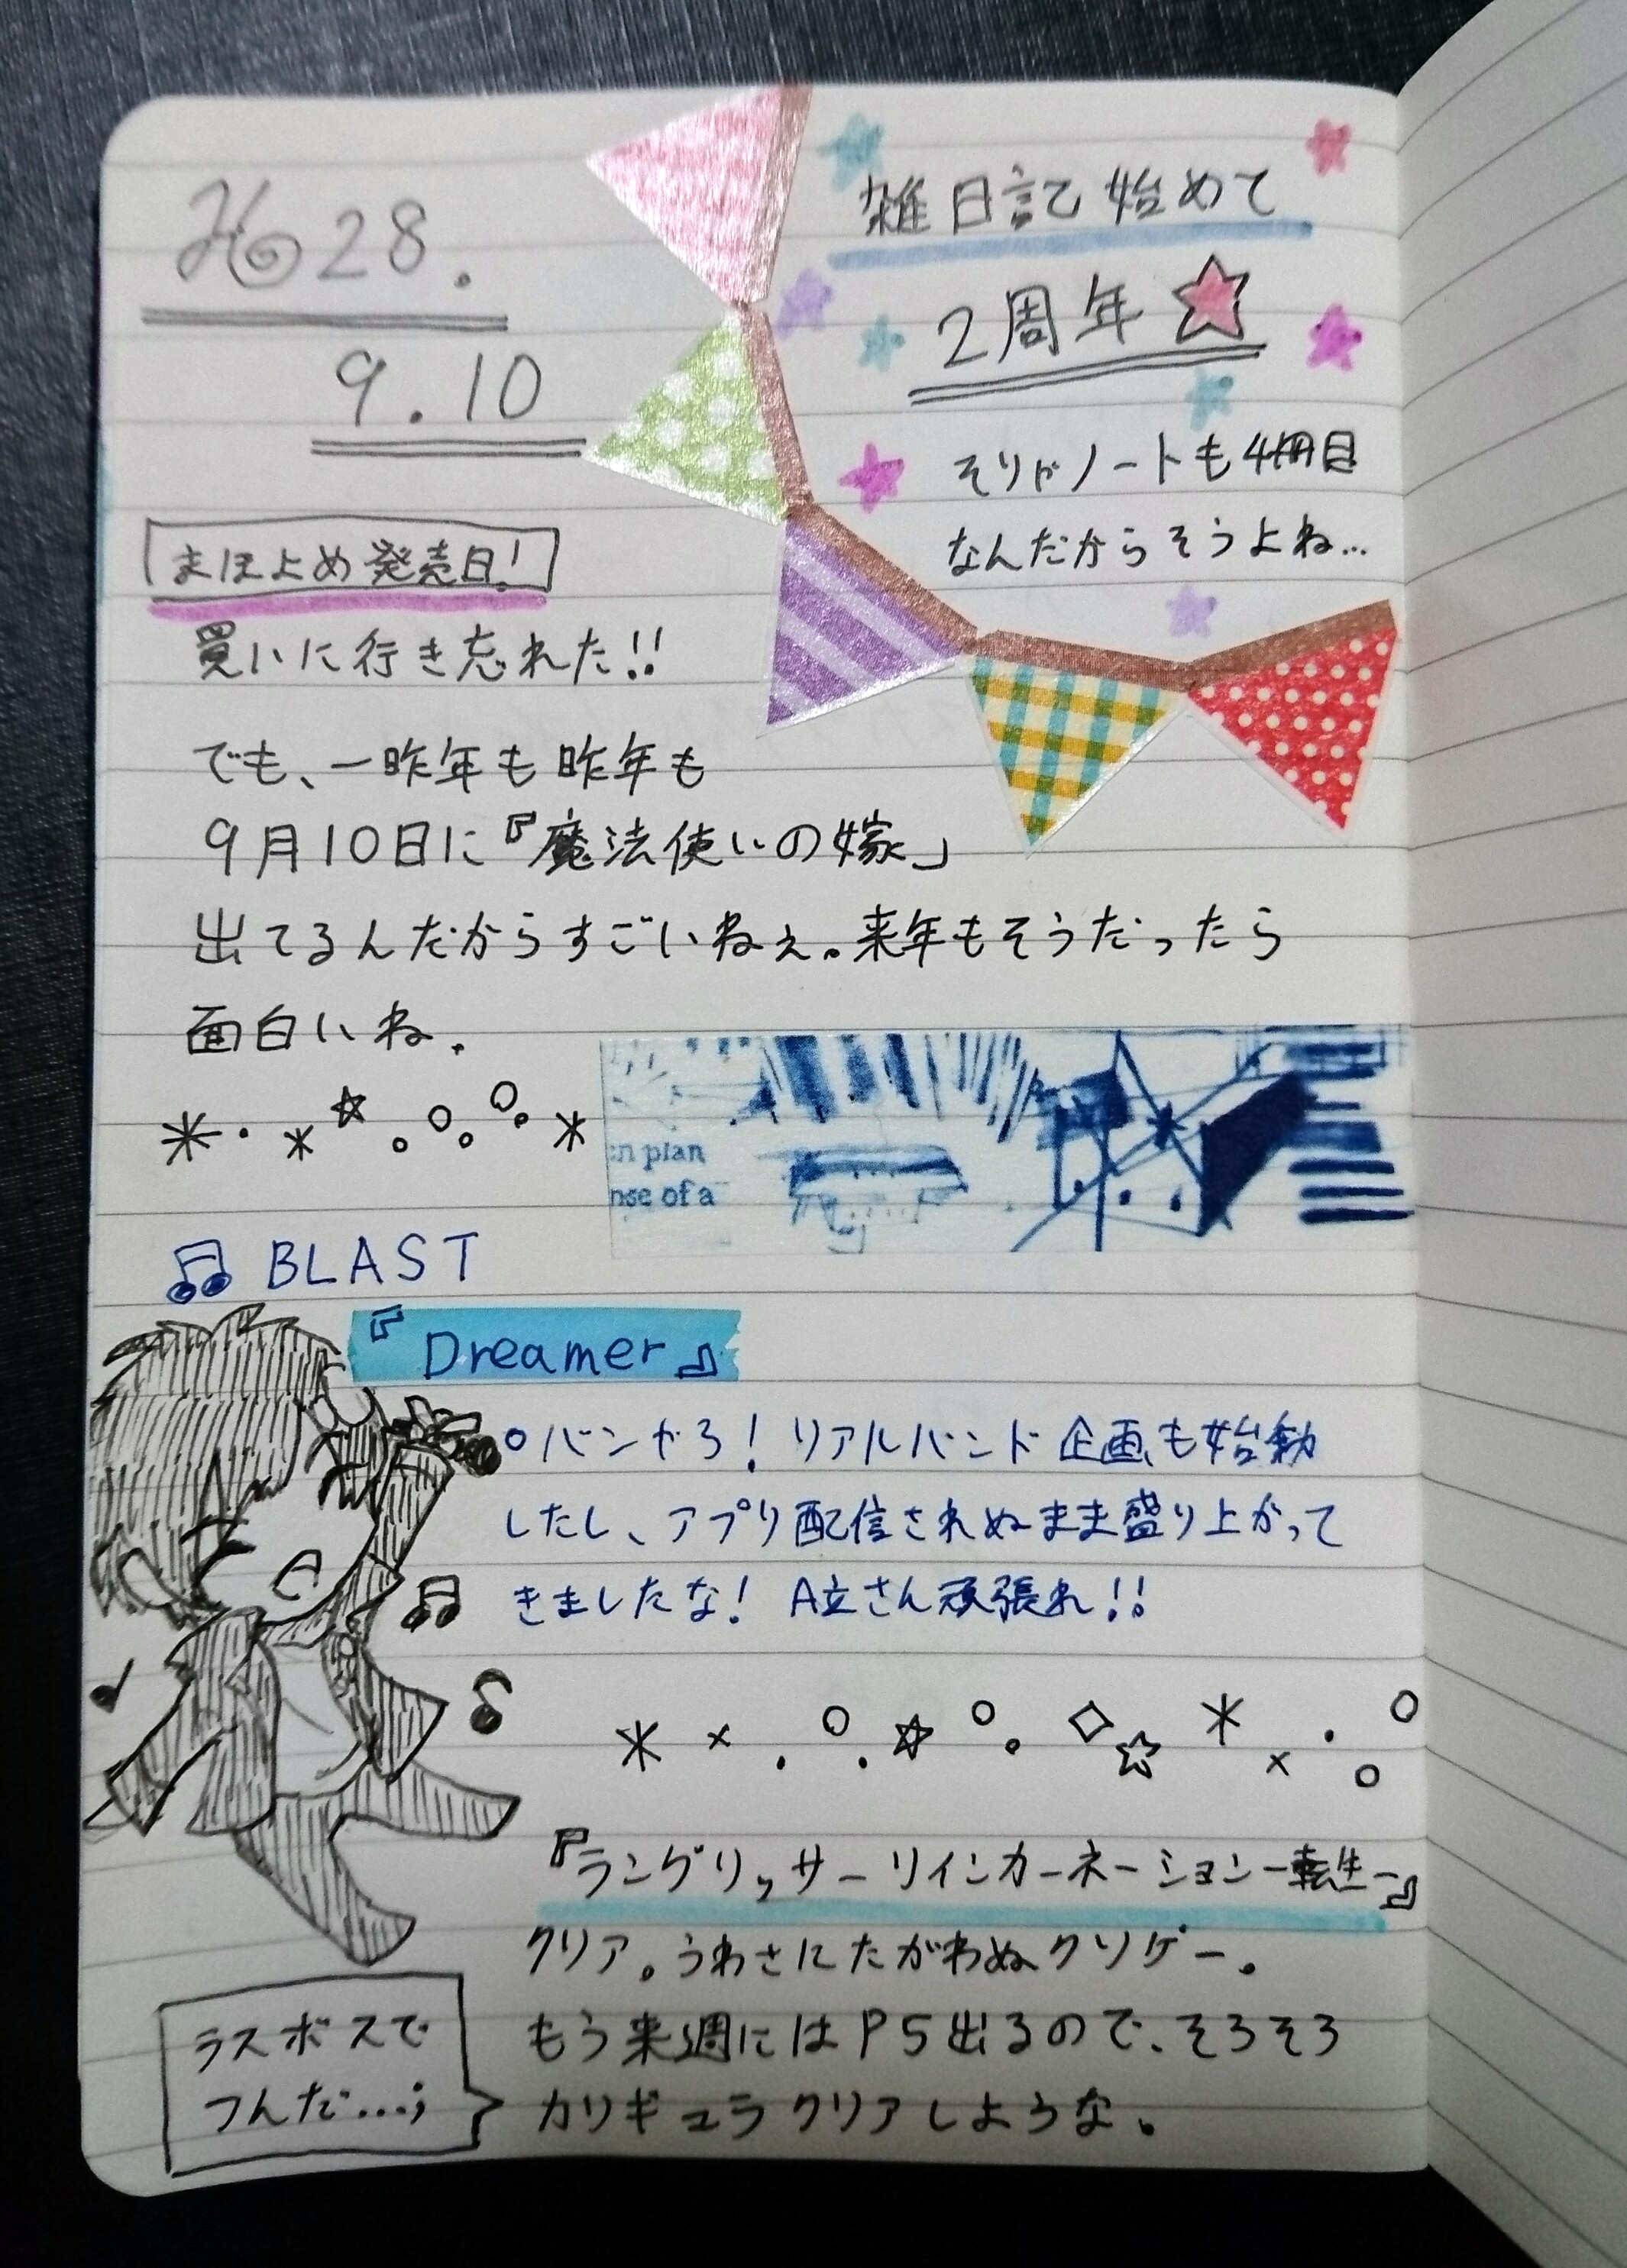 H28.
9.10
雑日記始めて
2周年☆
そりゃノートも4冊目
なんだからそうよね…
まほよめ発売日!
買いに行き忘れた!!
でも、一昨年も昨年も
9月10日に『魔法使いの嫁』
出てるんだからすごいねぇ。来年もそうだったら
面白いね。
n plan
nse of a
♫ BLAST
『Dreamer』
○バンやろ! リアルバンド企画も始動
したし、アプリ配信されぬまま盛り上がって
きましたな! A立さん頑張れ!!
『ラングリッサーリインカーネーション-転生-』
クリア。うわさにたがわぬクソゲー。
もう来週にはP5出るので、そろそろ
カリギュラクリアしような。
ラスボスで
つんだ…;